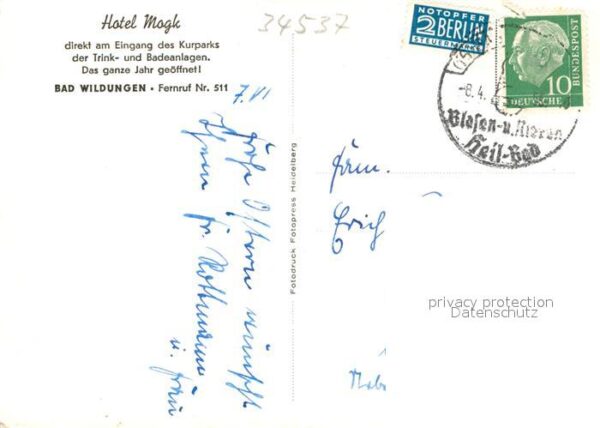 Hotel Mogk
direkt am Eingang des Kurparks
der Trink- und Badeanlagen.
Das ganze Jahr geöffnet!
BAD WILDUNGEN • Fernruf Nr. 511
34537
NOTOPFER
2 BERLIN
STEUERMARKE
DEUTSCHE
BUNDESPOST
10
-8.4.
Blasen-u.Nieren
Heil-Bad
Frohe Ostern wünscht
Ihnen Fr.
u. Frau
Fotodruck Fotopress Heidelberg
Fam.
Erich
privacy protection
Datenschutz